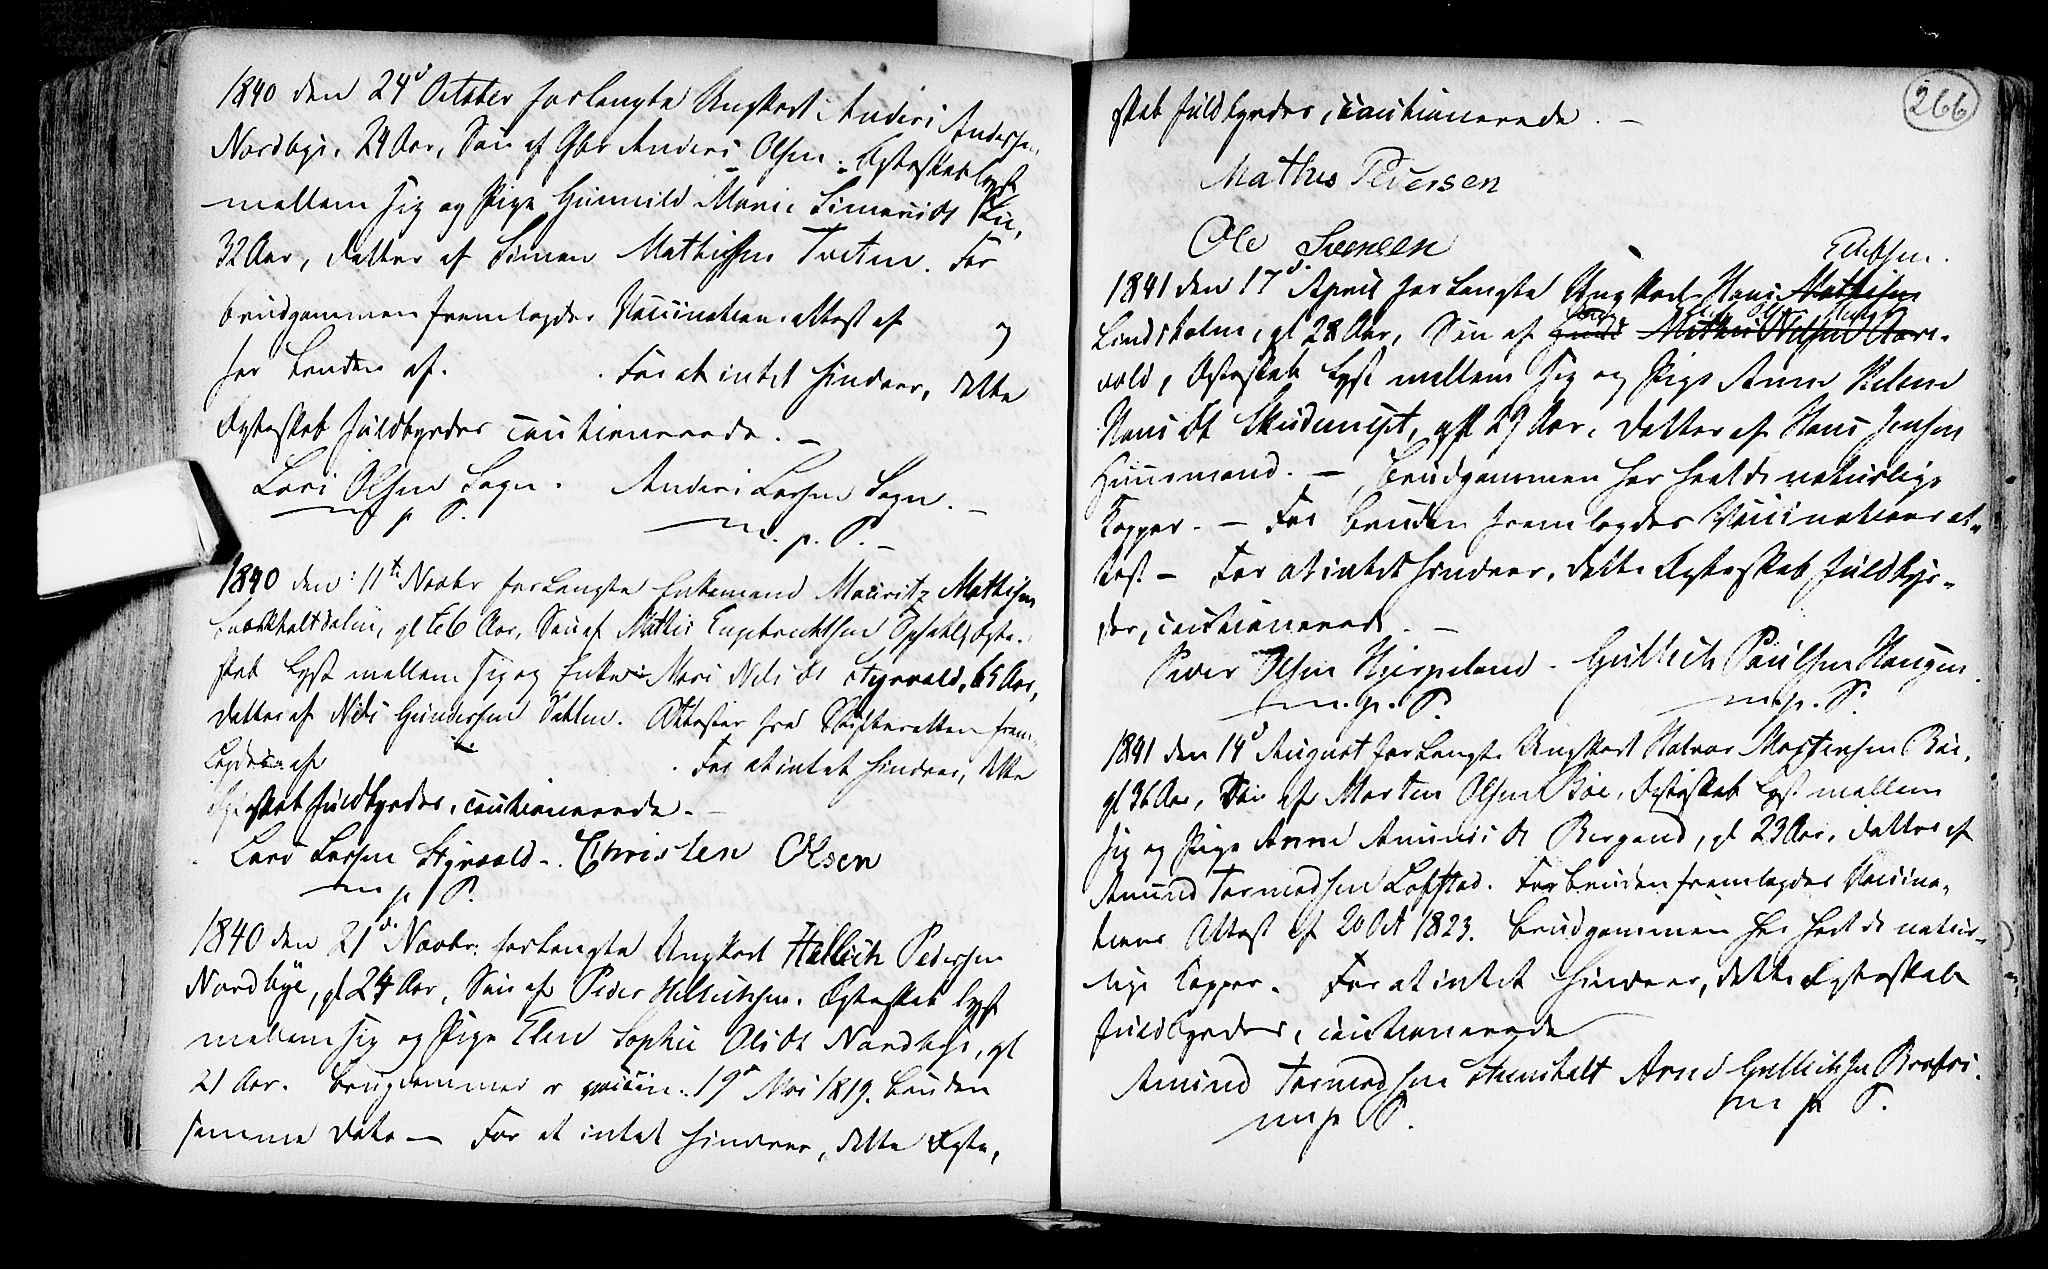 1840 den 24d October forlangte Ungkarl Anders Andersen
Nordbye, 24 Aar, Søn af Gbr Anders Olsen. Egteskab lyst
mellem sig og Pige Gunnild Marie Simensdt Lie,
32 Aar, Datter af Simen Mathisen Tveten. For
brudgommen fremlagdes Vaccinations attest af og
for bruden af. For at intet hindrer, dette
Egteskab fuldbyrdes cautionerede. —
Lars Olsen Sogn. Anders Larsen Sogn. —
m p P. m. p. P. —
1840 den 11te Novbr forlangte Enkemand Mauritz Mathisen
gl 66 Aar, Søn af Mathis Engebrechtsen Opsahl, Egte-
skab lyst mellem sig og Enke Mari Nilsdt Styrvold, 65 Aar,
Datter af Nils Gundersen Attester fra Skifteretten frem-
lagdes af For at intet hindrer, dette
Egteskab fuldbyrdes, cautionerede. —
Lars Larsen Styrvold. Christen Olsen
m p P.
1840 den 21d Novbr. forlangte Ungkarl Hellich Pedersen
Nordbye, gl 24 Aar, Søn af Peder Hellichsen. Egteskab lyst
mellem sig og Pige Elen Sophie Olsdt Nordbye, gl
21 Aar. Brugdommen er vaccin. 19d Nov 1819. Bruden
samme Dato — For at intet hindrer, dette Egte-
266
skab fuldbyrdes, cautionerede. —
Mathis Pedersen
Ole Sveneen
Ellefsen.
1841 den 17d April forlangte Ungkarl Hans Mathisen
Lindsholm, gl 28 Aar, Søn af Mathis Nilsen Aars-
vold, Egteskab lyst mellem sig og Pige Anne Helene
Hansdt gl 29 Aar, Datter af Hans Jensen
Huusmand. — Brudgommen har havt de naturlige
Kopper. — For bruden fremlagdes Vaccinations at-
test — For at intet hindrer, dette Egteskab fuldbyr-
des, cautionerede. —
Peder Olsen Hjerpeland. Gullich Paulsen Haugen.
m. p. P. m. p. P.
1841 den 14d August forlangte Ungkarl Halvor Mortensen Bøe,
gl 36 Aar, Søn af Morten Olsen Bøe, Egteskab lyst mellem
sig og Pige Anne Amundsdt Bergand, gl 23 Aar, Datter af
Amund Tormodsen Lofstad. For bruden fremlagdes Vaccina-
tions Attest af 20 Oct 1823. Brudgommen har havt de natur-
lige Kopper. For at intet hindrer, dette Egteskab
fuldbyrdes, cautionerede
Amund Tormodsen Arne Gullichsen
m p P. m p P.